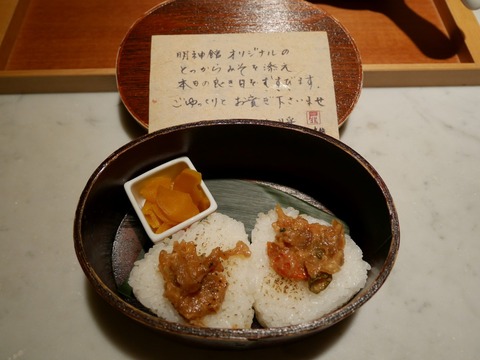 明神館 オリジナルの
とっからみそを添え
本日の良き日をむすびます。
ごゆっくりとお召し下さいませ